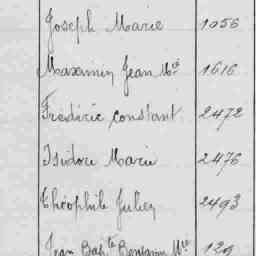 Joseph Marie 1056
Maxemin Jean Mie 1616
Frédéric, constant. 2472
Isidore Marie 2476
Théophile Julien 2493
Jean Bapte Benjamin Mie 129